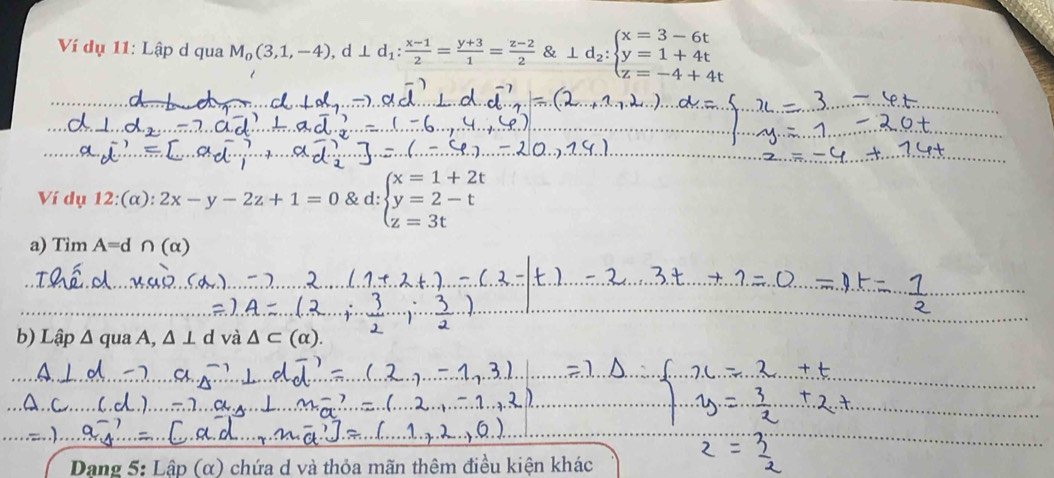 Ví dụ 11: Lập d qua M₀(3,1,−4), d ⊥ d₁: (x−1)/2 = (y+3)/1 = (z−2)/2 & ⊥ d₂: { x = 3 − 6t
y = 1 + 4t
z = −4 + 4t
d ⊥ d₁ → a⃗d ⊥ a⃗d₁ = (2,1,2) d = { x = 3 − 4t
d ⊥ d₂ → a⃗d ⊥ a⃗d₂ = (−6,4,4) y = 1 − 20t
a⃗d = [a⃗d₁, a⃗d₂] = (−4, −20, 14) z = −4 + 14t
Ví dụ 12:(α): 2x − y − 2z + 1 = 0 & d: { x = 1 + 2t
y = 2 − t
z = 3t
a) Tìm A=d ∩ (α)
Thế d vào (α) → 2(1+2t) − (2−t) − 2.3t + 1 = 0 ⇒ t = 1/2
⇒ A = (2; 3/2; 3/2)
b) Lập Δ qua A, Δ ⊥ d và Δ ⊂ (α).
Δ ⊥ d → a⃗Δ ⊥ d⃗d = (2, −1, 3) ⇒ Δ: { x = 2 + t
Δ ⊂ (d) → aΔ ⊥ n⃗a = (2, −1, 2) y = 3/2 + 2t
⇒ a⃗Δ = [a⃗d, n⃗a] = (1, 2, 0)
z = 3/2
Dạng 5: Lập (α) chứa d và thỏa mãn thêm điều kiện khác